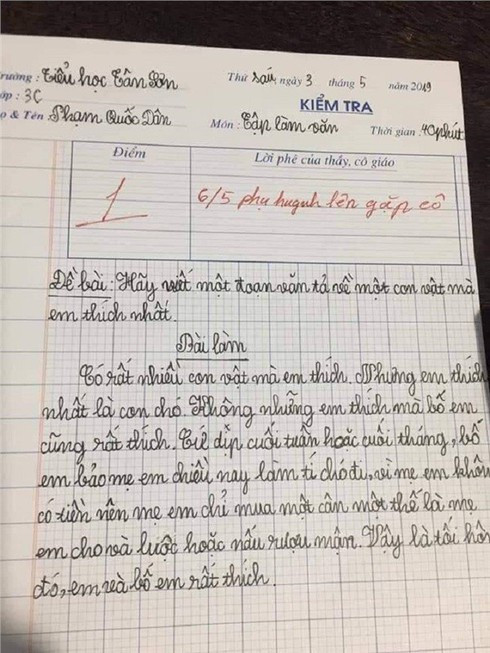 rường : Tiểu học Tân Sơn Thứ sáu, ngày 3 tháng 5 năm 2019
ớp : 3C KIỂM TRA
ọ & Tên : Phạm Quốc Dân Môn : Tập làm văn Thời gian : 40 phút
Điểm Lời phê của thầy, cô giáo
1 6/5 phụ huynh lên gặp cô
Đề bài : Hãy viết một đoạn văn tả về một con vật mà
em thích nhất.
Bài làm
Có rất nhiều con vật mà em thích. Nhưng em thích
nhất là con chó. Không những em thích mà bố em
cũng rất thích. Cứ dịp cuối tuần hoặc cuối tháng, bố
em bảo mẹ em chiều nay làm tí chó đi, vì mẹ em khôn
có tiền nên mẹ em chỉ mua một cân một thế là mẹ
em cho và luộc hoặc nấu rượu mận. Vậy là tối hôm
đó, em và bố em rất thích.